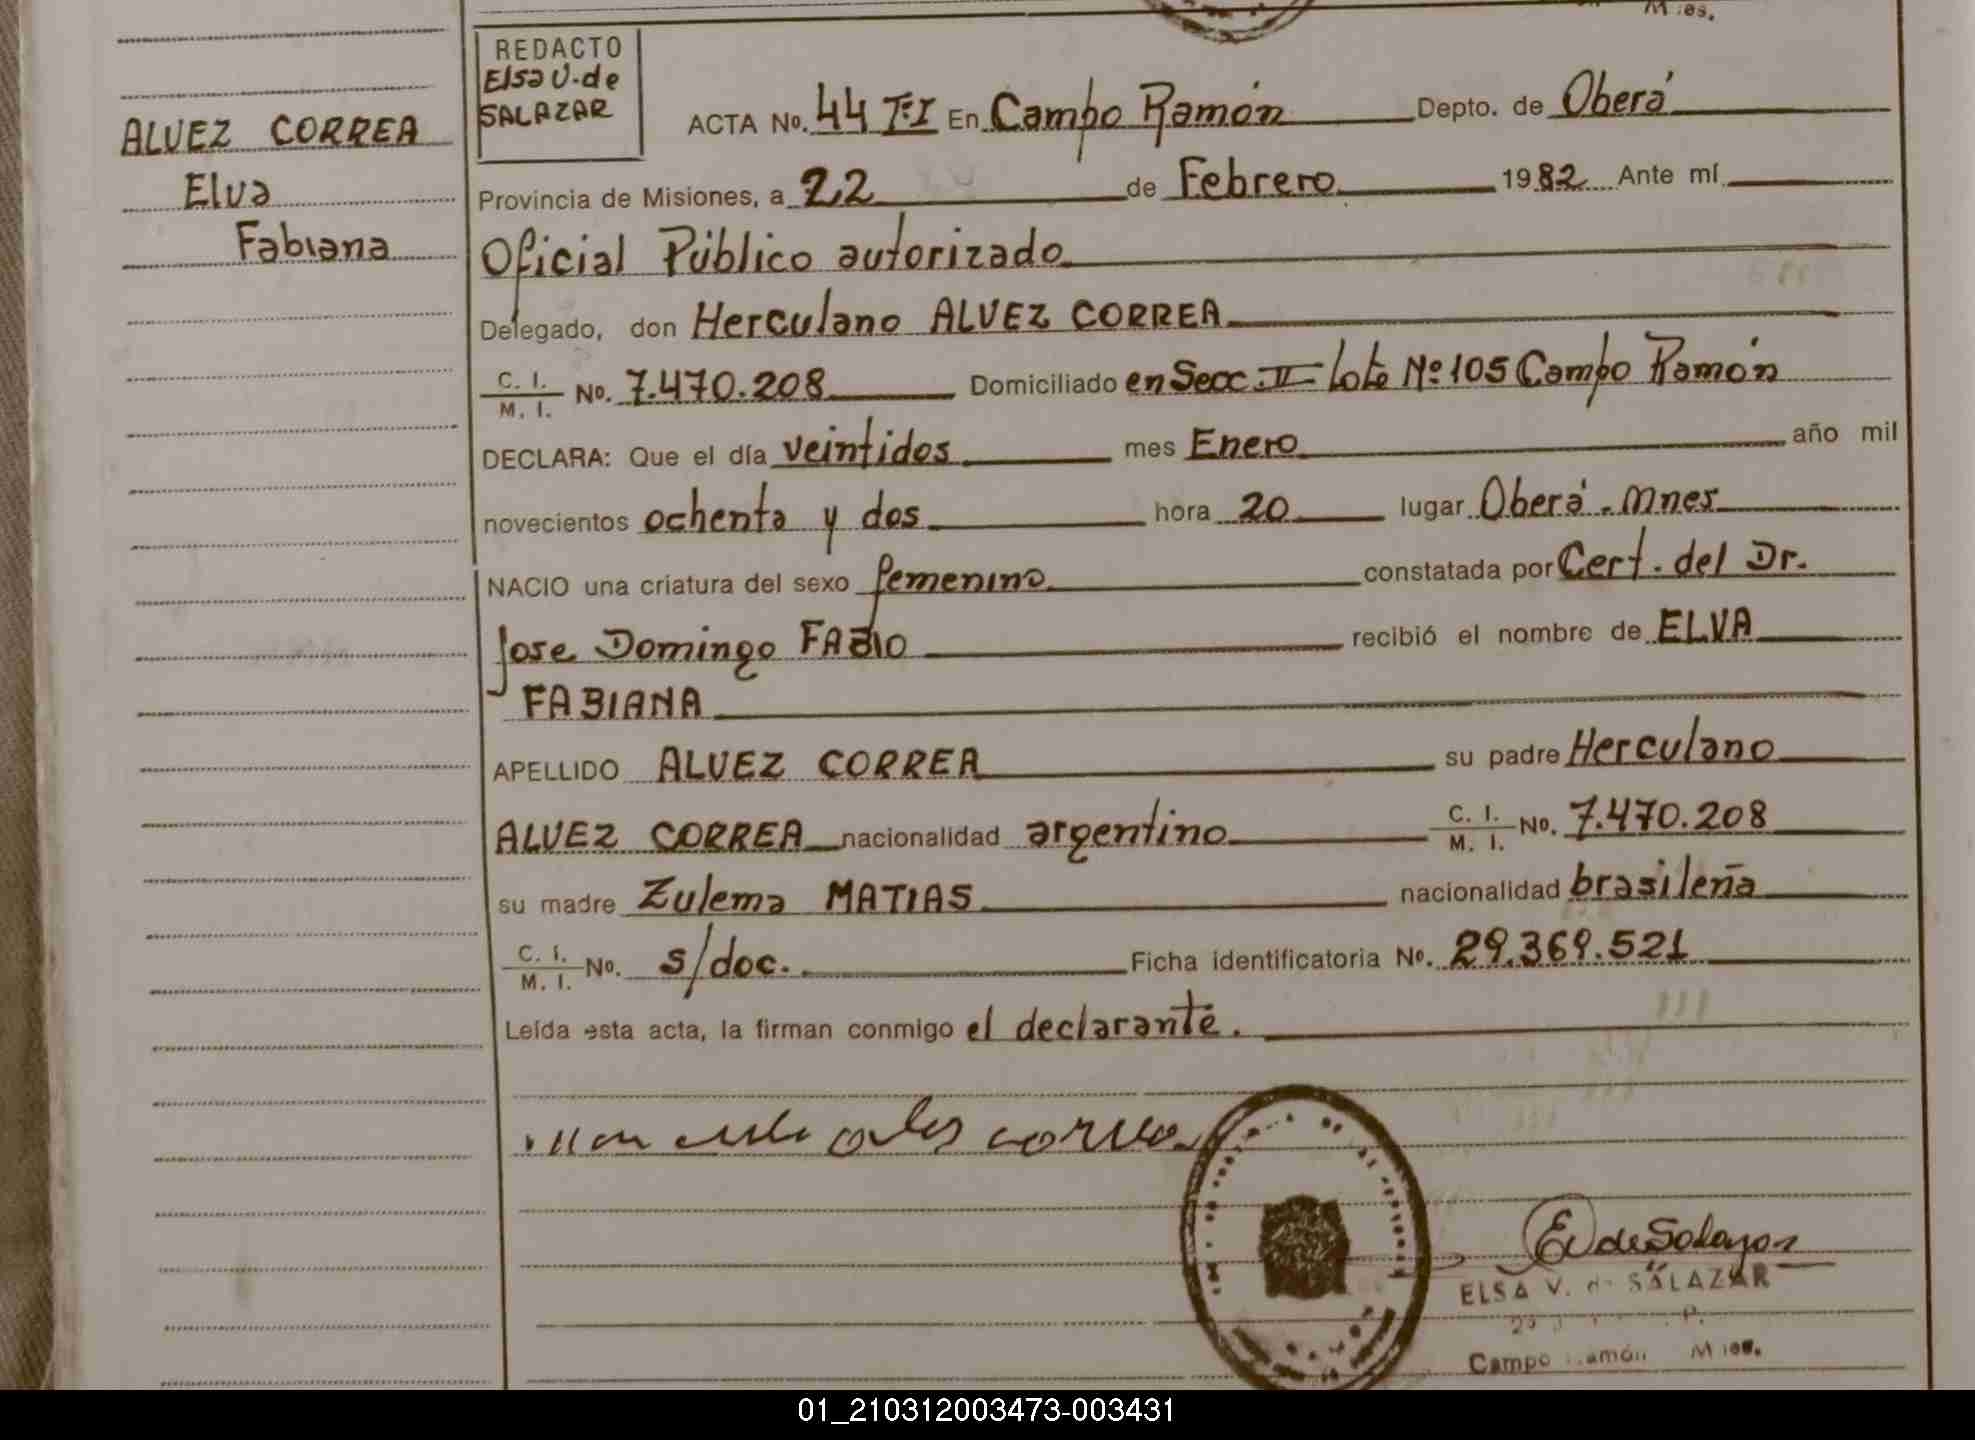 Mies.
REDACTO
Elsa V. de
SALAZAR
ALVEZ CORREA
Elva
Fabiana
ACTA No. 44 Tº I En Campo Ramón Depto. de Oberá
Provincia de Misiones, a 22 de Febrero 1982 Ante mí
Oficial Público autorizado
Delegado, don Herculano ALVEZ CORREA
C. I. / M. I. No. 7.470.208 Domiciliado en Secc. II Lote Nº 105 Campo Ramón
DECLARA: Que el día veintidos mes Enero año mil
novecientos ochenta y dos hora 20 lugar Oberá - Mnes
NACIO una criatura del sexo femenino constatada por Cert. del Dr.
Jose Domingo FABIO recibió el nombre de ELVA
FABIANA
APELLIDO ALVEZ CORREA su padre Herculano
ALVEZ CORREA nacionalidad argentino C. I. / M. I. No. 7.470.208
su madre Zulema MATIAS nacionalidad brasileña
C. I. / M. I. No. s/doc. Ficha identificatoria No. 29.369.521
Leída esta acta, la firman conmigo el declarante.
E V de Salazar
ELSA V. de SALAZAR
Campo Ramón Mies.
01_210312003473-003431